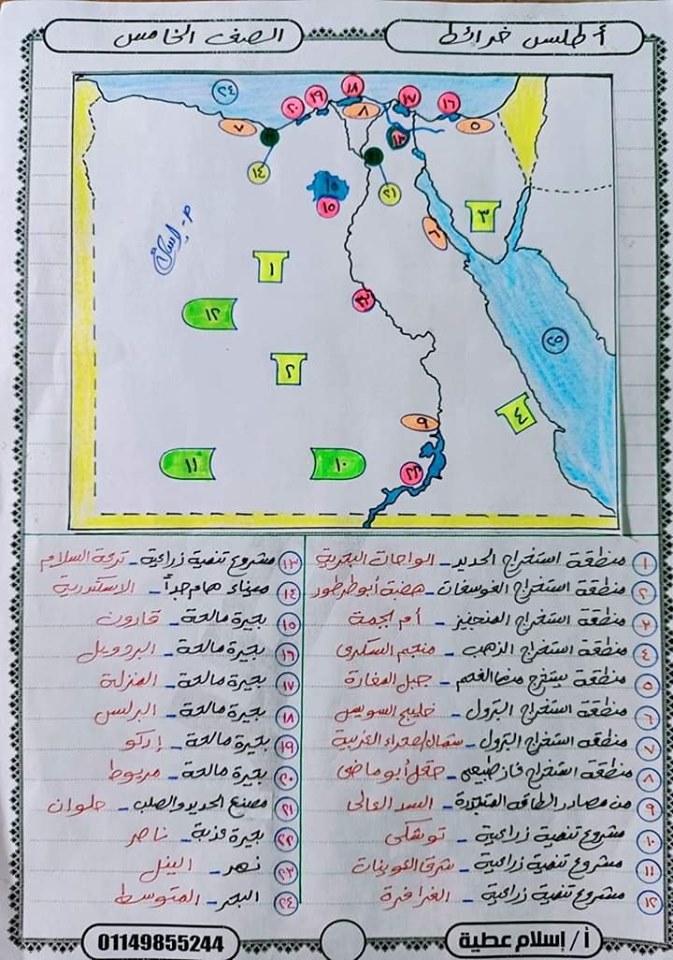 أطلس خرائط
الصف الخامس
٢٤
٢٠
١٩
١٨
١٧
١٦
٧
٨
٥
١٣
١٤
٢١
١٥
٣
٦
١
١٢
٢٣
٢٥
٢
٤
٩
١١
١٠
٢٢
١ منطقة استخراج الحديد - الواحات البحرية
٢ منطقة استخراج الفوسفات - هضبة أبو طرطور
٣ منطقة استخراج المنجنيز - أم بجمة
٤ منطقة استخراج الذهب - منجم السكرى
٥ منطقة يستخرج منها الفحم - جبل المغارة
٦ منطقة استخراج البترول - خليج السويس
٧ منطقة استخراج البترول - شمال/صحراء الغربية
٨ منطقة استخراج غاز طبيعى - حقل أبو ماضى
٩ من مصادر الطاقة المتجددة - السد العالى
١٠ مشروع تنمية زراعية - توشكى
١١ مشروع تنمية زراعية - شرق العوينات
١٢ مشروع تنمية زراعية - الفرافرة
١٣ مشروع تنمية زراعية - ترعة السلام
١٤ ميناء هام جداً - الاسكندرية
١٥ بحيرة مالحة - قارون
١٦ بحيرة مالحة - البردويل
١٧ بحيرة مالحة - المنزلة
١٨ بحيرة مالحة - البرلس
١٩ بحيرة مالحة - إدكو
٢٠ بحيرة مالحة - مريوط
٢١ مصنع الحديد والصلب - حلوان
٢٢ بحيرة عذبة - ناصر
٢٣ نهر - النيل
٢٤ البحر - المتوسط
أ/ إسلام عطية
01149855244